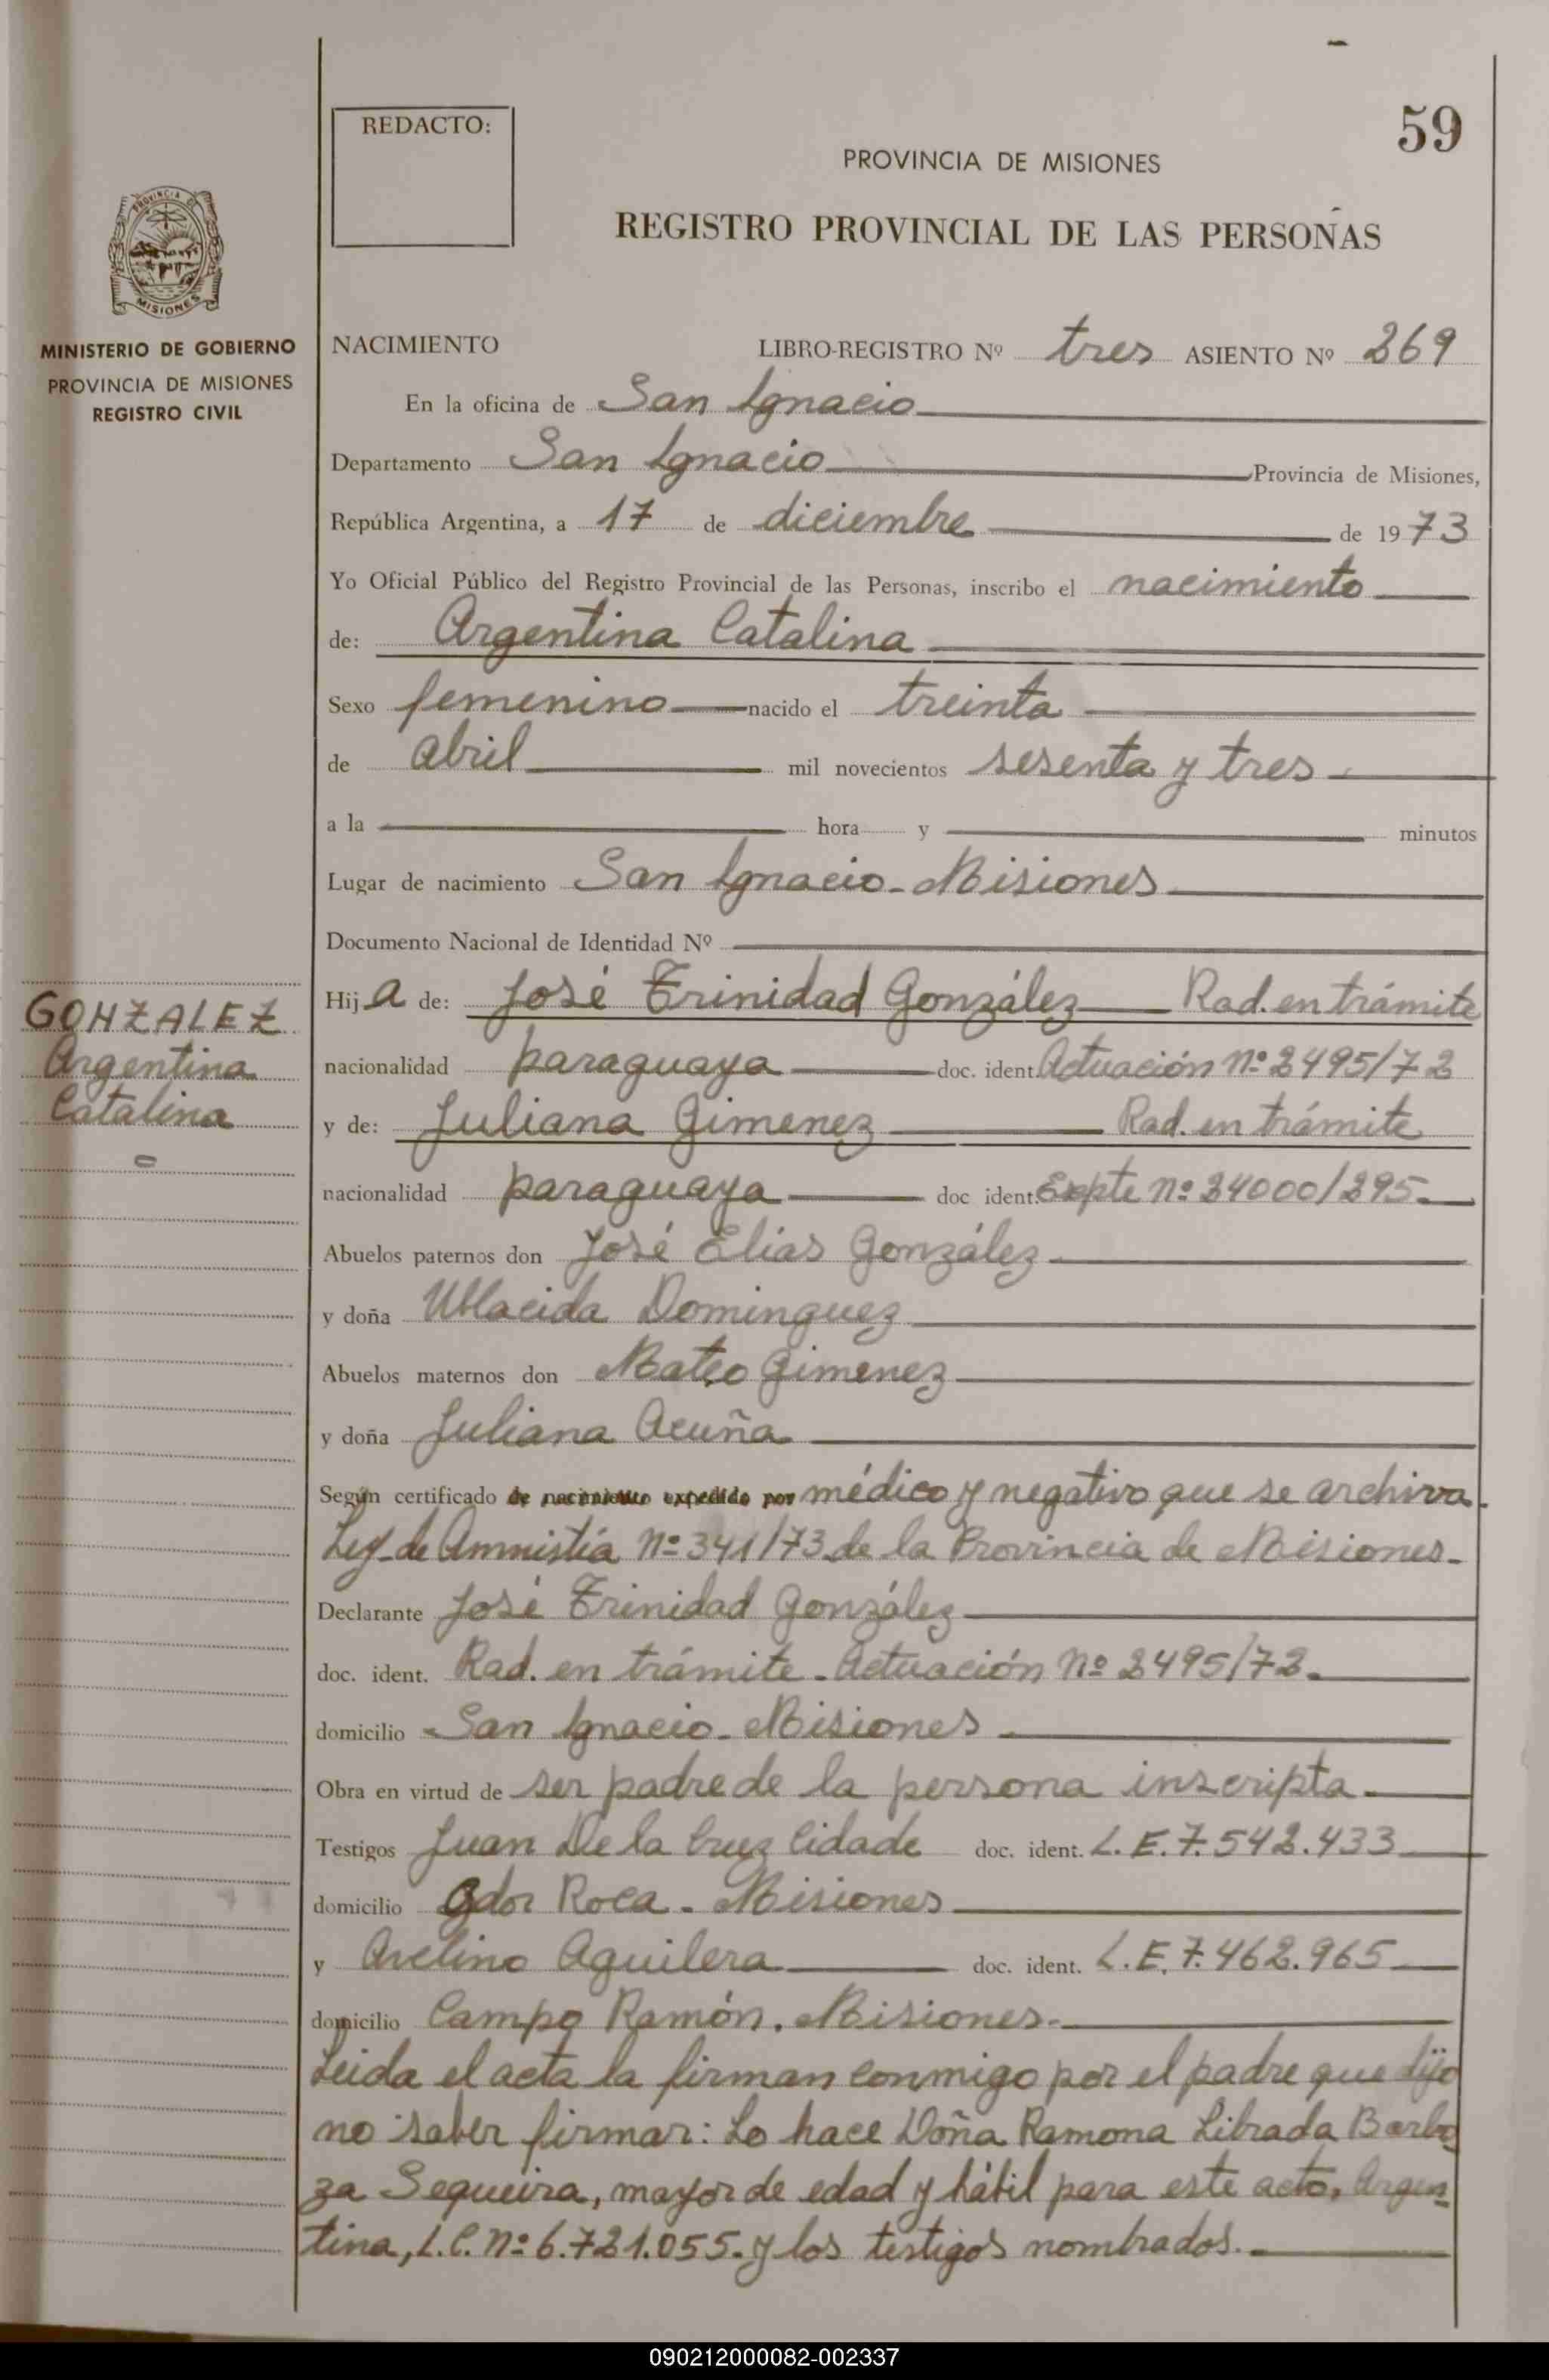 59
REDACTO:
PROVINCIA DE MISIONES
REGISTRO PROVINCIAL DE LAS PERSONAS
PROVINCIA DE
MISIONES
MINISTERIO DE GOBIERNO
PROVINCIA DE MISIONES
REGISTRO CIVIL
NACIMIENTO LIBRO-REGISTRO Nº tres ASIENTO Nº 269
En la oficina de San Ignacio
Departamento San Ignacio Provincia de Misiones,
República Argentina, a 17 de diciembre de 1973
Yo Oficial Público del Registro Provincial de las Personas, inscribo el nacimiento
de: Argentina Catalina
Sexo femenino nacido el treinta
de abril mil novecientos sesenta y tres
a la hora y minutos
Lugar de nacimiento San Ignacio - Misiones
Documento Nacional de Identidad Nº
GONZALEZ
Argentina
Catalina
Hija de: José Trinidad González Rad. en trámite
nacionalidad paraguaya doc. ident. Actuación nº 2495/72
y de: Juliana Gimenez Rad. en trámite
nacionalidad paraguaya doc ident. Expte nº 24000/295.
Abuelos paternos don José Elías González
y doña Ublacida Dominguez
Abuelos maternos don Mateo Gimenez
y doña Juliana Acuña
Según certificado de nacimiento expedido por médico y negativo que se archiva.
Ley de Amnistía nº 341/73 de la Provincia de Misiones.
Declarante José Trinidad González
doc. ident. Rad. en trámite. Actuación nº 2495/72.
domicilio San Ignacio - Misiones
Obra en virtud de ser padre de la persona inscripta.
Testigos Juan De la Cruz Cidade doc. ident. L.E. 7.542.433
domicilio Gdor Roca - Misiones
y Avelino Aguilera doc. ident. L.E. 7.462.965
domicilio Campo Ramón. Misiones.
Leida el acta la firman conmigo por el padre que dijo
no saber firmar: Lo hace Doña Ramona Librada Barbo
za Sequeira, mayor de edad y hábil para este acto, Argen
tina, L.C. nº 6.721.055. y los testigos nombrados.
090212000082-002337